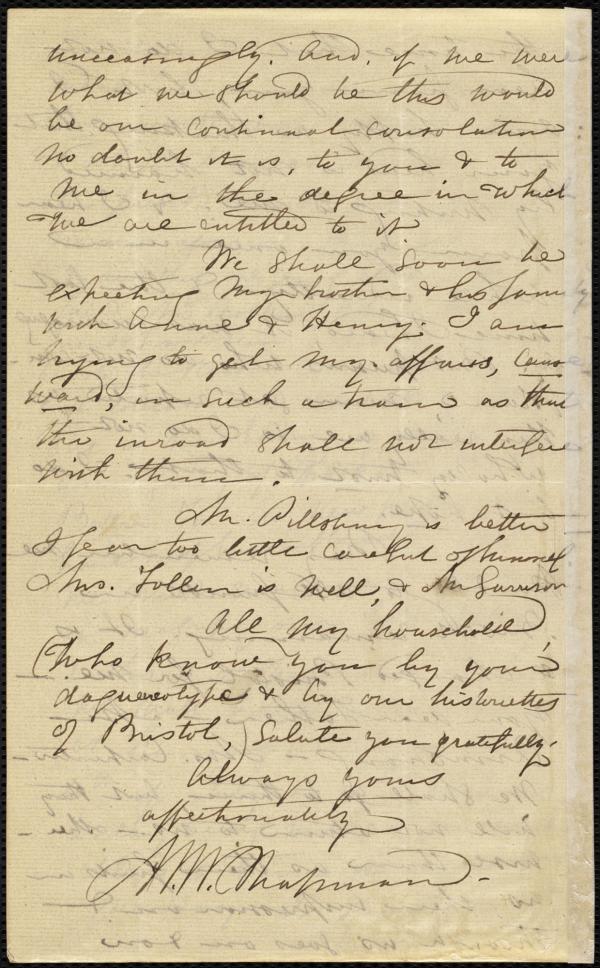 unceasingly. And. if we were
what we should be this would
be our continual consolation
no doubt it is, to you & to
me in the degree in which
we are entitled to it
We shall soon be
expecting my brother & his family
with Anne & Henry. I am
trying to get my affairs, cause
ward, in such a train as that
the inroad shall not interfere
with them.
Mr. Pillsbury is better
I fear too little careful of himself
Mrs. Follen is well, & Mr Garrison
All my household
(who know you by your
daguereotype & by our historiettes
of Bristol,) salute you gratefully.
Always yours
affectionately
M. W. Chapman.